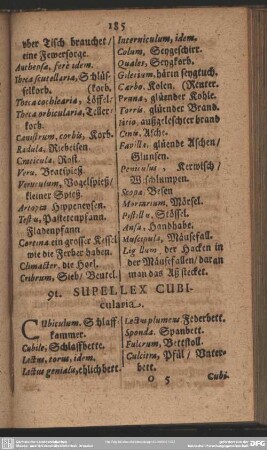 185
vber Tisch brauchet/
eine Fewersorge.
Authepsæ, ferè idem.
Theca scutellaria, Schüs-
selkorb. (korb.
Theca cochlearia, Löffel-
Theca orbicularia, Teller-
korb.
Canistrum, corbis, Korb.
Radula, Riebeisen.
Craticula, Rost.
Veru, Bratspieß.
Veruculum, Vogelspieß/
kleiner Spieß.
Artopta Hippeneysen.
Testu, Pastetenpfann.
Fladenpfann
Cortina ein grosser Kessel
wie die Ferber haben.
Climacter, die Horl.
Cribrum, Sieb/ Beutel.
Incerniculum, idem.
Colum, Seygeschier.
Qualus, Seygkorb.
Cilicium, hären seygtuch.
Carbo, Kolen. (Reuter.
Pruna, glüender Kohle.
Torris, glüender Brand.
Titio, außgelschter brand
Cinis, Asche.
Favilla, glüende Aschen/
Glunsen.
Peniculus, Kerwisch/
Wischlumpen.
Scopa, Besen
Mortarium, Mörsel.
Pistillum, Stössel.
Ansa, Handhabe.
Muscipula, Mäusefall.
der Hacken in
der Mäusefallen/ daran
man das Aß stecket.
91. SUPELLEX CUBI-
cularia.
CUbiculum, Schlaff-
kammer.
Cubile, Schlaffbette,
Lectus, torus, idem.
Lectus genialis, ehlichbett
Lectus plumeus Federbett.
Sponda, Spanbett.
Fulcrum, Bettstoll.
Culcitra, Pfül/ Vnter-
bett.
O 5 Cubi-